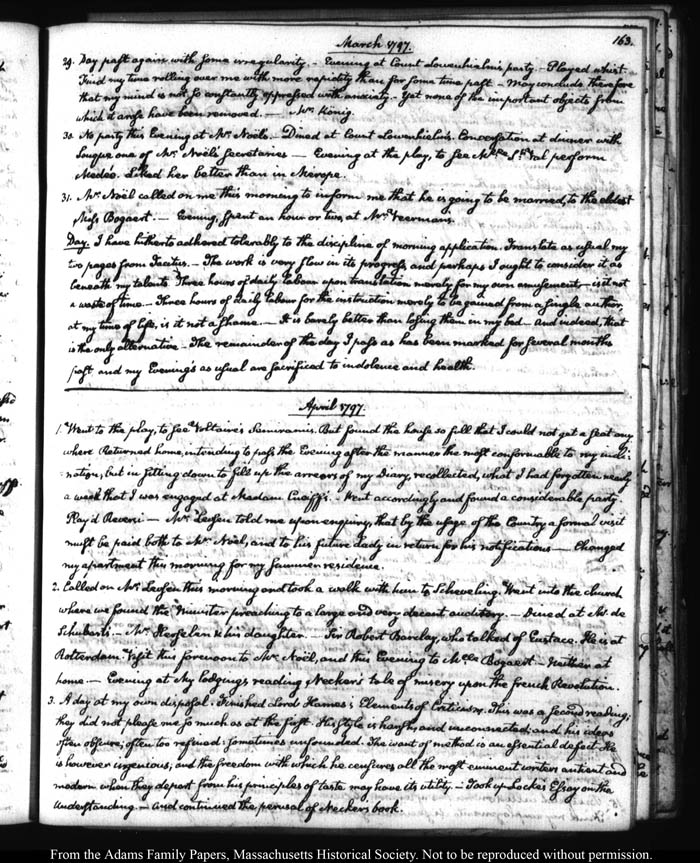 163.
March 1797.
29. Day past again with some irregularity. - Evening at Count Lowenhielm's party - Played whist.
Find my time rolling over me with more rapidity than for some time past - May conclude therefore
that my mind is not so constantly oppressed with anxiety. Yet none of the important objects from
which it arose have been removed. — Mr. König.
30. No party this Evening at Mr. Noël's - Dined at Count Lowenhielm's. Conversation at dinner with
one of Mr. Noël's Secretaries — Evening at the play, to see perform
Medée. Liked her better than in Merope.
31. Mr. Noël called on me this morning to inform me that he is going to be married, to the eldest
Miss Bogaert. — Evening, spent an hour or two, at Mrs. Veerman's
Day. I have hitherto adhered tolerably to the discipline of morning application. Translate as usual my
two pages from Tacitus. - The work is very slow in its progress, and perhaps I ought to consider it as
beneath my talents. Three hours of daily labour upon translation merely for my own amusement - is it not
a waste of time. - Three hours of daily labour for the instruction merely to be gained from a single author,
at my time of life, is it not a shame. — It is barely better than losing them in my bed - And indeed, that
is the only alternative - The remainder of the day I pass as has been marked for several months
past and my Evening's as usual are sacrificed to indolence and health.
April 1797.
1. Went to the play, to see Voltaire's Semiramis. But found the house so full that I could not get a seat any
where. Returned home, intending to pass the Evening after the manner the most conformable to my incli-
-nation; but in sitting down to fill up the arrears of my Diary, recollected, what I had forgotten nearly
a week that I was engaged at Madam - Went accordingly and found a considerable party.
Play'd Reversi — Mr. told me upon enquiry, that by the usage of the Country a formal visit
must be paid both to Mr. Noël, and to his future lady in return for his notifications — Changed
my apartment this morning for my Summer residence.
2. Called on Mr. this morning and took a walk with him to Scheveling. Went into the church
where we found the Minister preaching to a large and very decent auditory. — Dined at Mr. de
Schubart's. — Mr. & his daughter. — Sir Robert Barclay, who talked of Eustace. He is at
Rotterdam. Visit this forenoon to Mr. Noël, and this Evening to Mlle. Bogaert - Neither at
home. — Evening at my lodgings reading Necker's tale of misery upon the French Revolution.
3. A day at my own disposal. Finished Lord Kames's Elements of Criticism. This was a second reading;
they did not please me so much as at the first. His style is harsh, and unconnected; and his ideas
often obscure; often too refined: sometimes unfounded. The want of method is an essential defect. He
is however ingenious; and the freedom with which he censures all the most eminent writers antient and
modern when they depart from his principles of taste may have its utility. - Took up Locke's Essay on the
Understanding. - And continued the perusal of Necker's book.
From the Adams Family Papers, Massachusetts Historical Society. Not to be reproduced without permission.